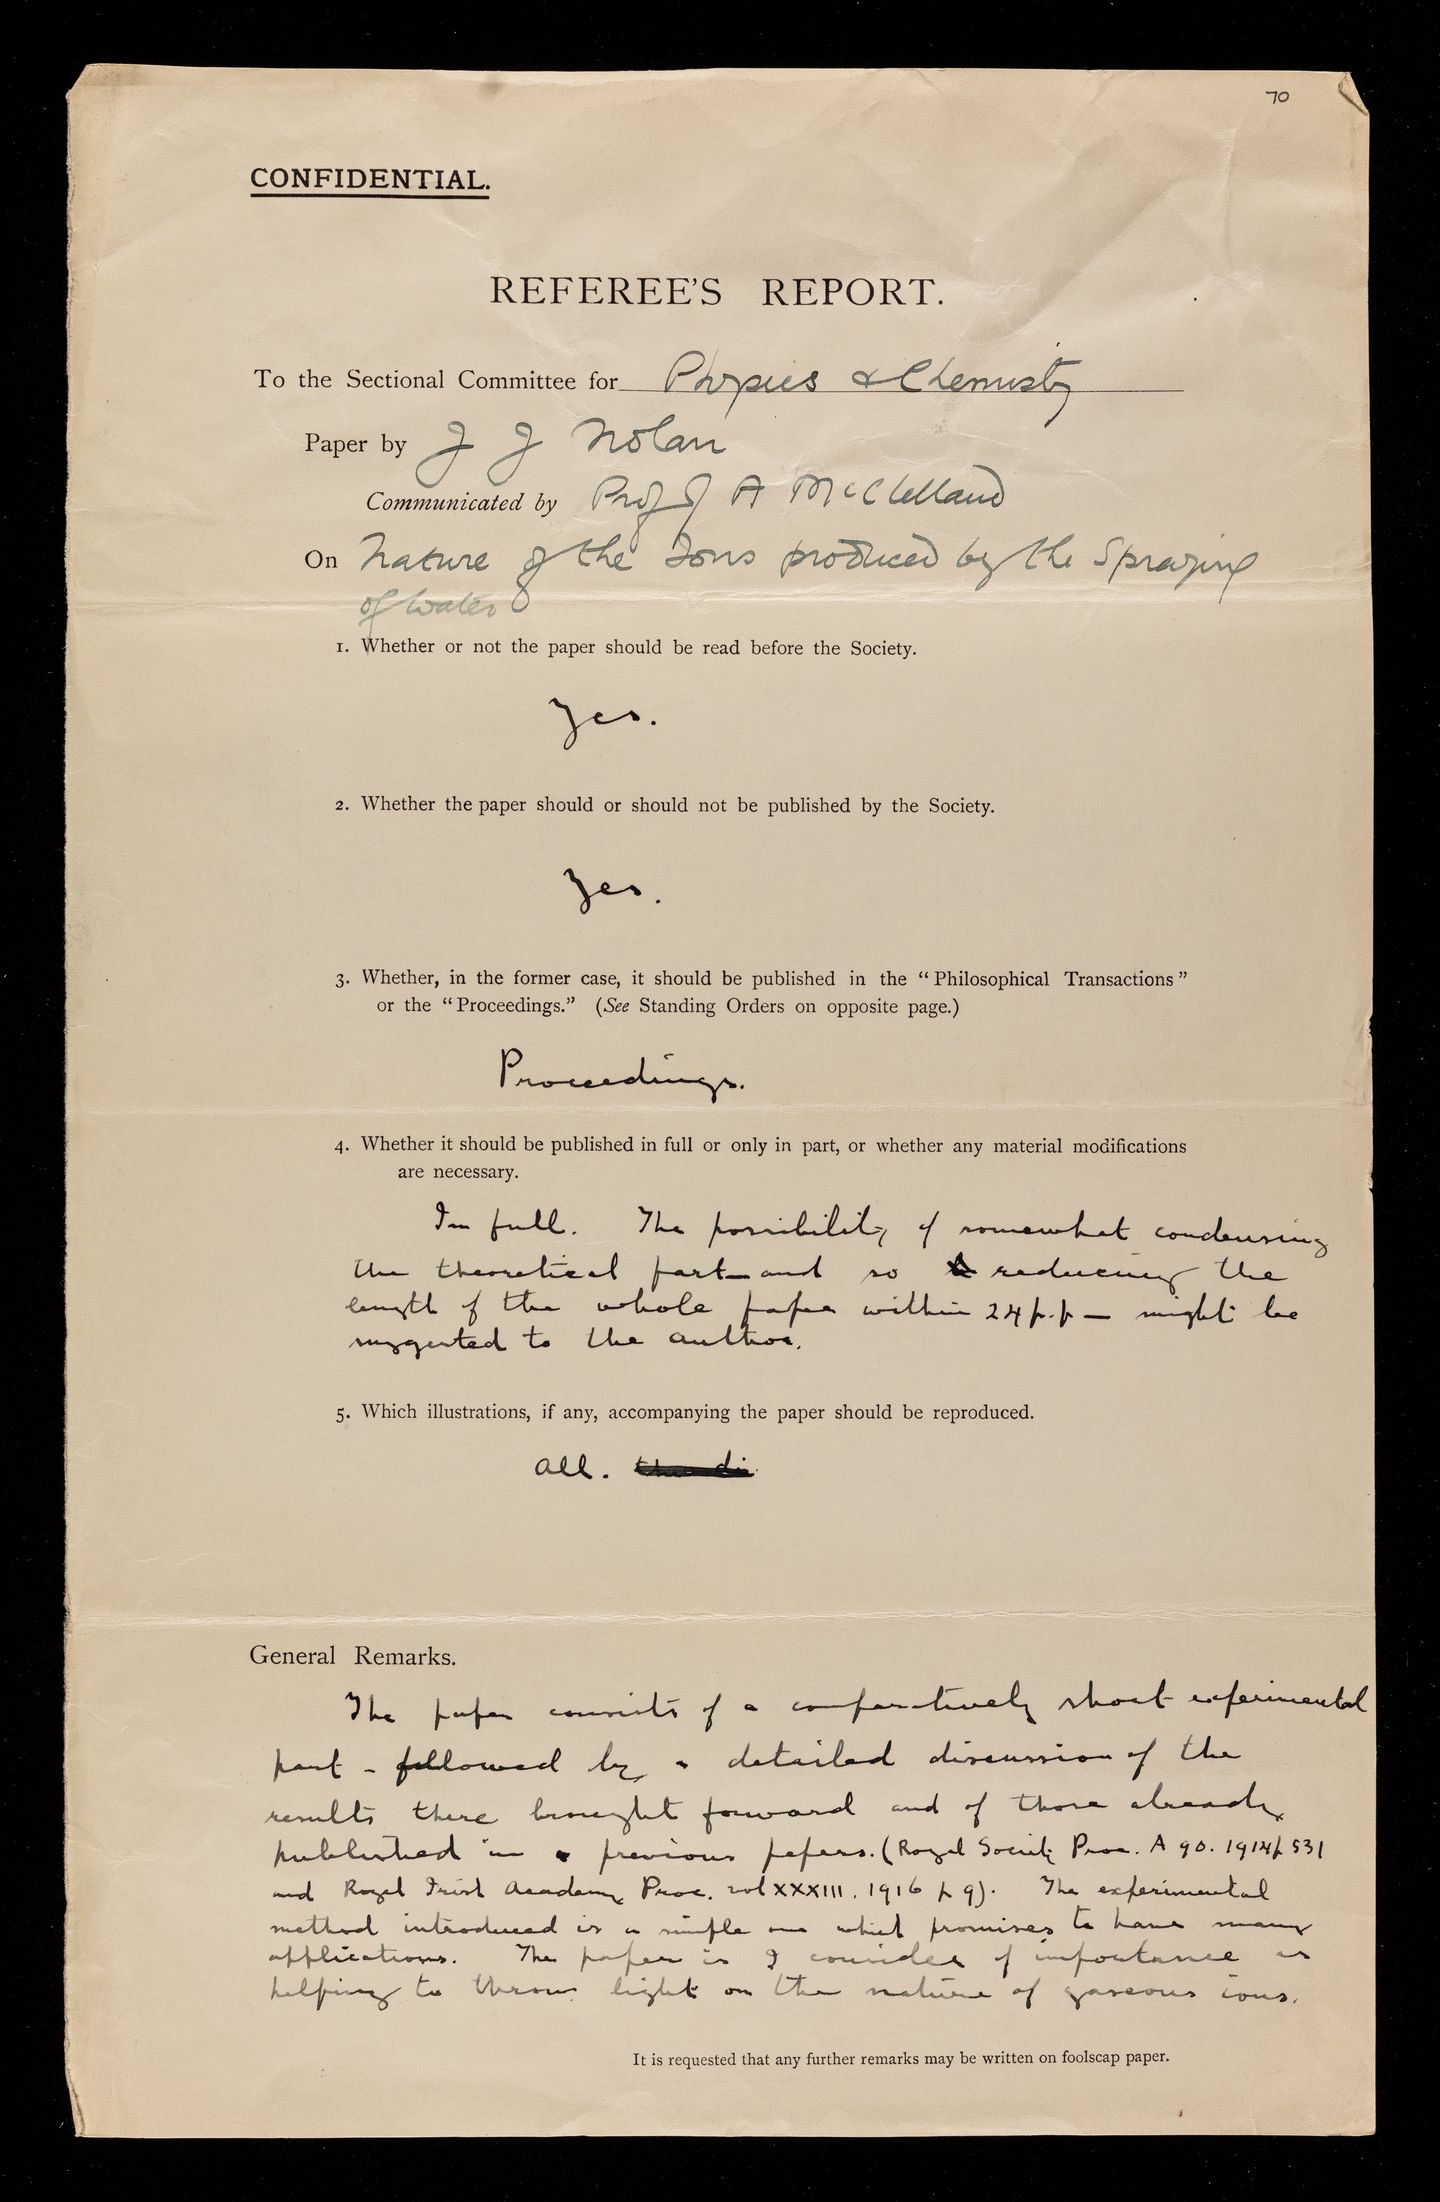 70
CONFIDENTIAL.
REFEREE'S REPORT.
To the Sectional Committee for Physics & Chemistry
Paper by J J Nolan
Communicated by Prof J A McClelland
On Nature of the Ions produced by the Spraying
of Water
1. Whether or not the paper should be read before the Society.
Yes.
2. Whether the paper should or should not be published by the Society.
Yes.
3. Whether, in the former case, it should be published in the "Philosophical Transactions"
or the "Proceedings." (See Standing Orders on opposite page.)
Proceedings.
4. Whether it should be published in full or only in part, or whether any material modifications
are necessary.
In full. The possibility of somewhat condensing
the theoretical part – and so reducing the
length of the whole paper within 24 p.p – might be
suggested to the author.
5. Which illustrations, if any, accompanying the paper should be reproduced.
All.
General Remarks.
The paper consists of a comparatively short experimental
part – followed by a detailed discussion of the
results there brought forward and of those already
published in previous papers. (Royal Society Proc. A 90. 1914 p 531
and Royal Irish Academy Proc. vol XXXIII. 1916 p 9). The experimental
method introduced is a simple one which promises to have many
applications. The paper is I consider of importance as
helping to throw light on the nature of gaseous ions.
It is requested that any further remarks may be written on foolscap paper.